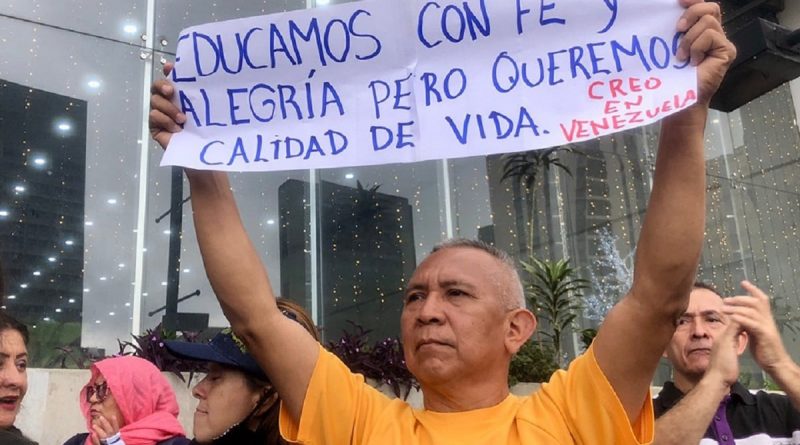 EDUCAMOS CON FE Y
ALEGRÍA PERO QUEREMOS
CALIDAD DE VIDA.
CREO
EN
VENEZUELA